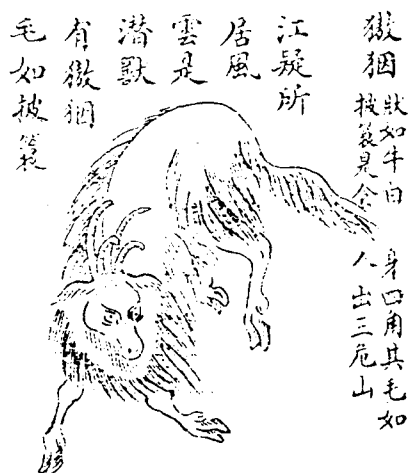 獓
狀如牛白身四角其毛如
披蓑是食人出三危山
江疑所
居風
雲是
潜獸
有獓
毛如披蓑